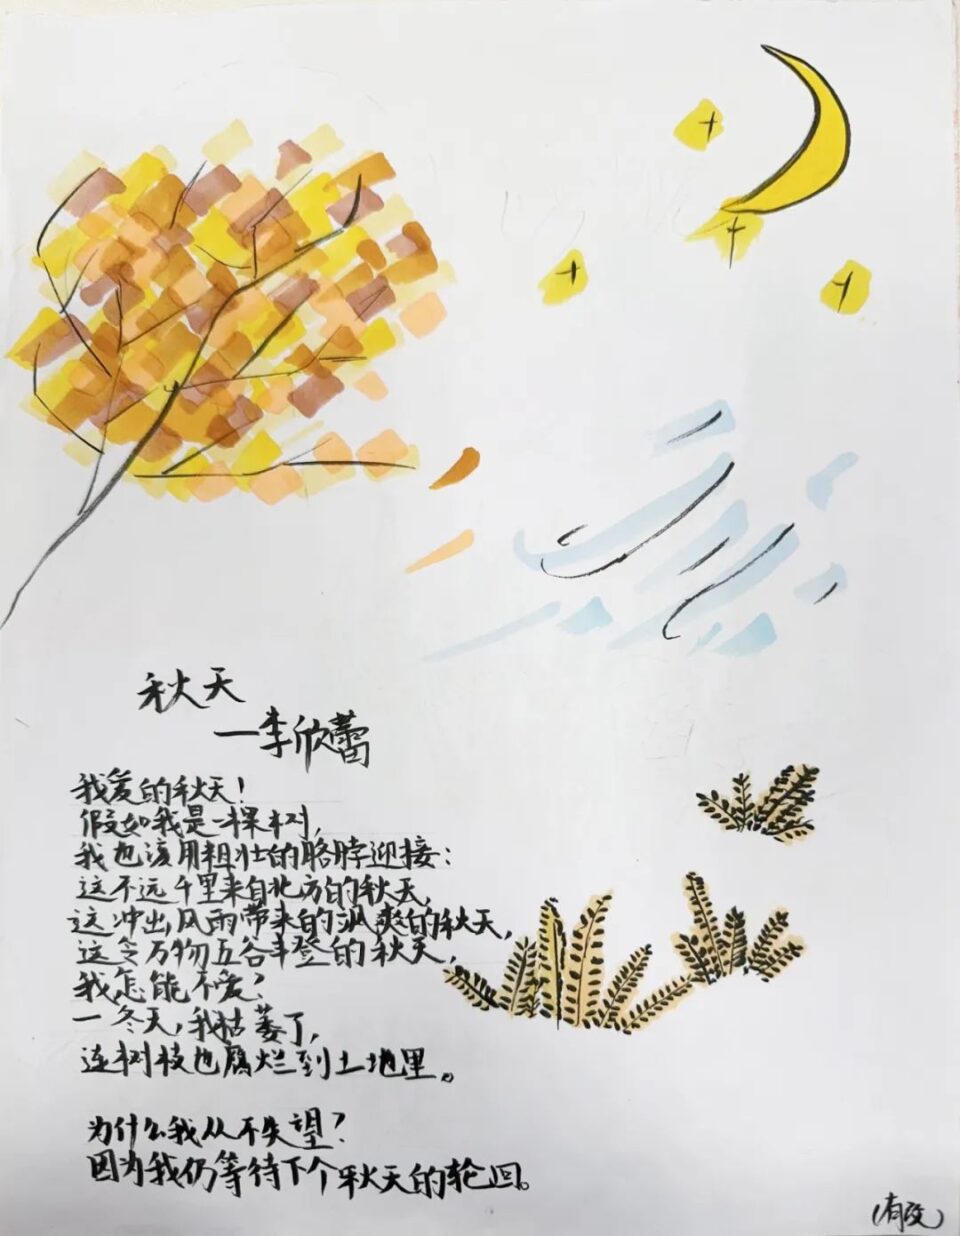 秋天
—李欣蕾
我爱的秋天！
假如我是一棵树，
我也该用粗壮的胳脖迎接：
这不远千里来自北方的秋天，
这冲出风雨带来的飒爽的秋天，
这令万物五谷丰登的秋天，
我怎能不爱？
一冬天，我枯萎了，
连树枝也腐烂到土地里。
为什么我从不失望？
因为我仍等待下个秋天的轮回。
（有改）